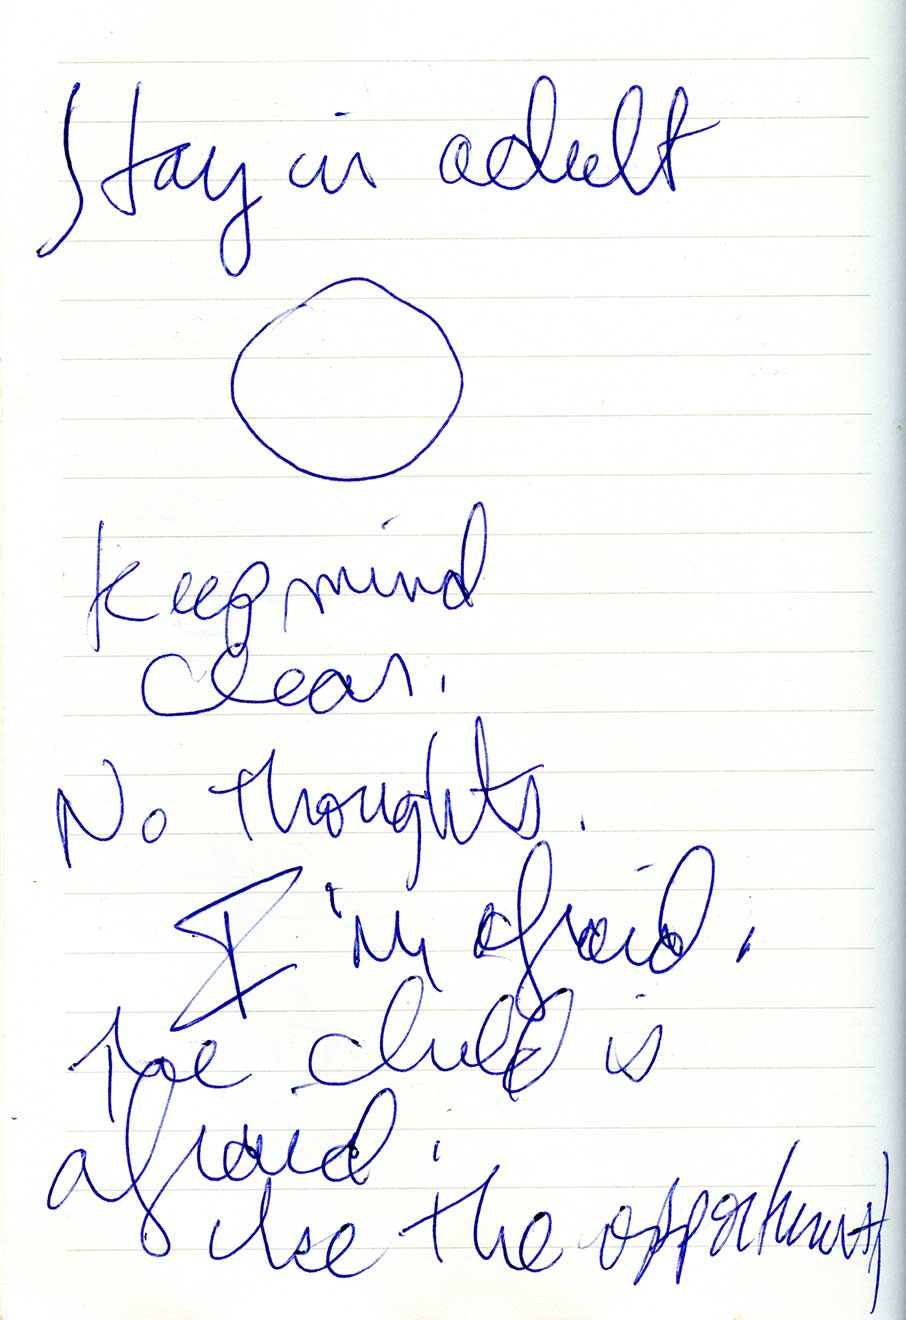 Stay in adult
Keep mind
clear.
No thoughts.
I'm afraid.
The child is
afraid.
Use the opportunity